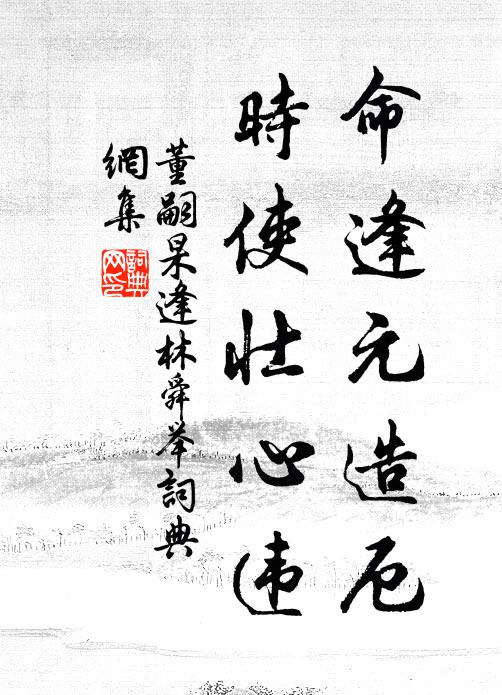 命逢元造厄
時使壮心违
董嗣杲逢林舜举詞典
網集
詞典
网印